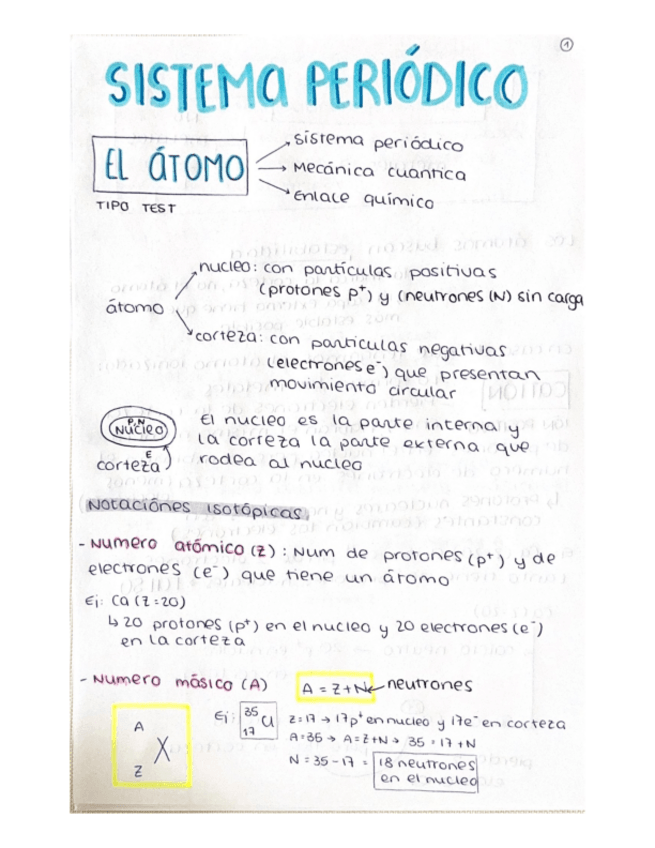 1
SISTEMA PERIÓDICO
EL ÁTOMO
sistema periódico
Mecánica cuantica
Enlace químico
TIPO TEST
átomo
nucleo: con partículas positivas
(protones p⁺) y (neutrones (N) sin carga
corteza: con particulas negativas
(electrones e⁻) que presentan
movimiento circular
P, N
Núcleo
E
corteza
El nucleo es la parte interna y
la corteza la parte externa que
rodea al nucleo
Notaciónes Isotópicas
- Numero atómico (Z) : Num de protones (p⁺) y de
electrones (e⁻) que tiene un átomo
Ej: Ca (Z=20)
↳ 20 protones (p⁺) en el nucleo y 20 electrones (e⁻)
en la corteza
- Numero másico (A)
A = Z + N ← neutrones
A
X
Z
Ej: 35 17 Cl
Z=17 → 17p⁺ en nucleo y 17e⁻ en corteza
A=35 → A=Z+N → 35 = 17 + N
N = 35 - 17 = 18 neutrones
en el nucleo